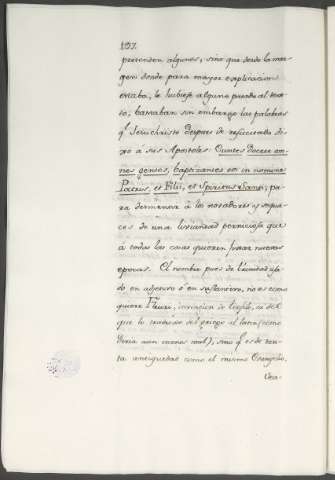 197.
pretenden algunos, sino que desde la mar-
gen donde para mayor explicacion
estaba, le hubiese alguno puesto al tex-
to; bastaban sin embargo las palabras
q.e Jesu christo despues de resucitado di-
xo a sus Apostoles. Euntes docete om-
nes gentes, baptizantes eos in nomine
Patris, et Filii, et Spiritus Sancti; pa-
ra desmentir á los novadores y sequa-
ces de una libertad perniciosa que
a todas las cosas quieren fixar nuevas
epocas. El nombre pues de Trinidad usa-
do en adjetivo ó en sustantivo, no es como
quiere Fleuri, invencion de Teofilo, ni del
que lo traduxo del griego al latin (como
diria aun menos mal), sino q.e es de tan-
ta antiguedad como el mismo Evangelio.